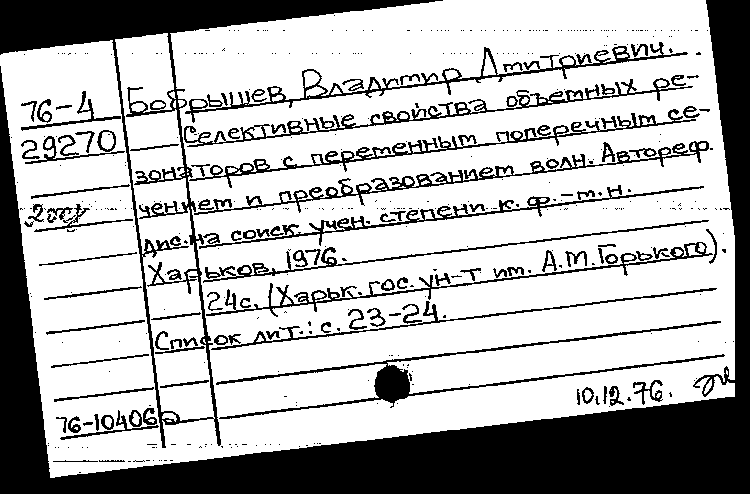 76-4 Бобрышев, Владимир Дмитриевич.
29270 Селективные свойства объемных ре-
зонаторов с переменным поперечным се-
чением и преобразованием волн. Автореф.
дис. на соиск. учен. степени к. ф.-м.н.
Харьков, 1976.
24с. (Харьк. гос. ун-т им. А.М.Горького).
Список лит.: с. 23-24.
10.12.76.
76-10406